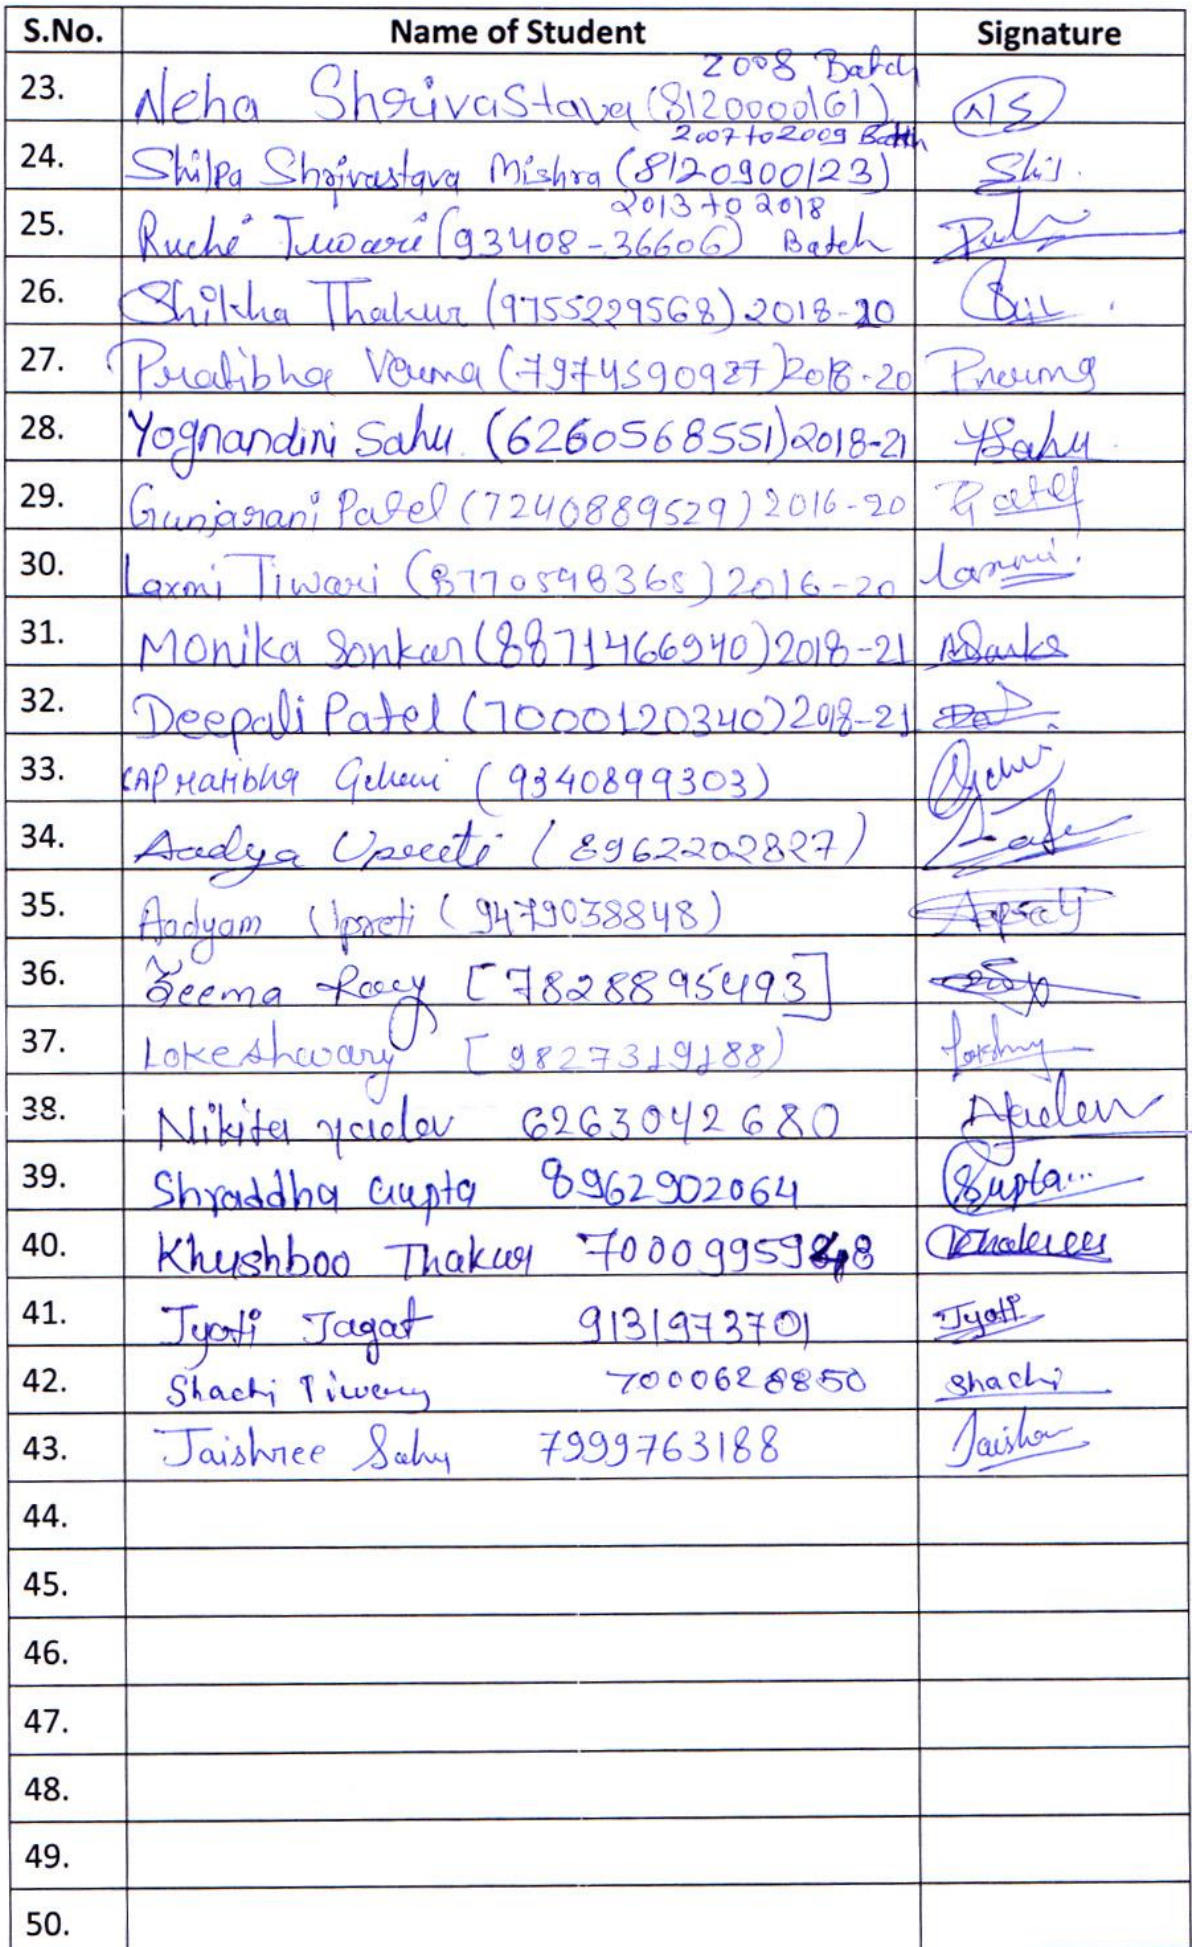 S.No. Name of Student Signature
23. Neha Shrivastava (8120000161) 2008 Batch NS
24. Shilpa Shrivastava Mishra (8120900123) 2007 to 2009 Batch Shil.
25. Ruchi Tiwari (93408-36606) 2013 to 2018 Batch
26. Shikha Thakur (9755229568) 2018-20
27. Pratibha Verma (7974590927) 2018-20 Pverma
28. Yognandini Sahu. (6260568551) 2018-21 YSahu.
29. Gunjarani Patel (7240889529) 2016-20 Patel
30. Laxmi Tiwari (8770598365) 2016-20 laxmi.
31. Monika Sonkar (8871466940) 2018-21
32. Deepali Patel (7000120340) 2018-21
33. CA Pratibha (9340899303)
34. Aadya Upreti (8962202827)
35. Aadyam Upreti (9479038848)
36. Seema Roy [7828895493]
37. Lokeshwary [9827319188)
38. Nikita yadav 6263042680
39. Shraddha Gupta 8962902064 Gupta...
40. Khushboo Thakur
41. Jyoti Jagat 9131973701 Jyoti
42. Shachi Tiwary 7000628850 Shachi
43. Jaishree Sahu 7999763188
44.
45.
46.
47.
48.
49.
50.